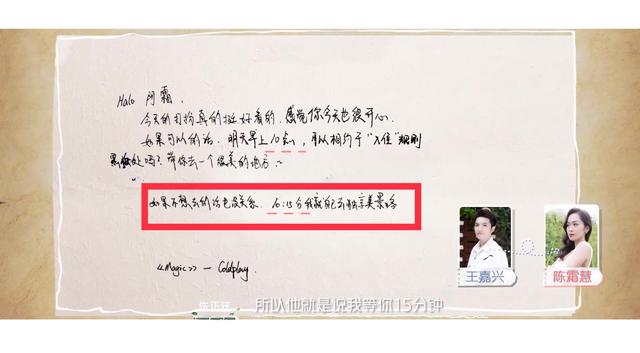 Halo 阿霜,
今天的打扮真的挺好看的,感觉你今天也很开心.
如果可以的话,明天早上10点,可以相约于"入住"规则
处吗?带你去一个很美的地方~
如果不想去的话也没关系,10:15分我就自己去独享美景咯
《Magic》—Coldplay.
王嘉兴
陈霜慧
所以他就是说我等你15分钟